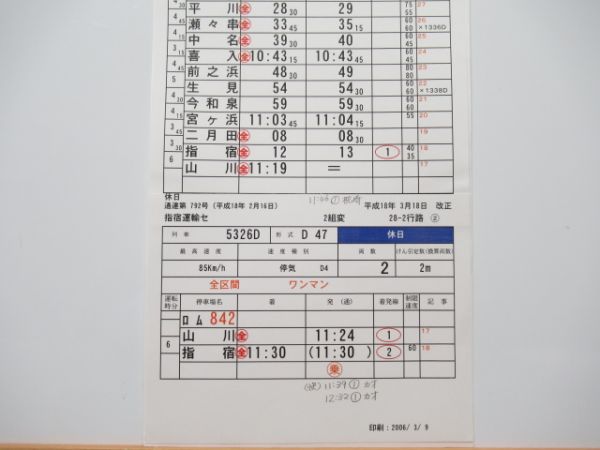 平 川 全 28 30 29 75 60 27
45 瀬々串 全 33 45 35 15 60 65 26 ×1336D
3 15 中 名 全 39 40 45 25
3 15 喜 入 全 10:43 15 10:43 45 60 60 24
4 45 前之浜 48 30 49 80 80 23
5 生 見 54 54 30 60 60 22 ×1338D
4 30 今和泉 59 59 30 60 60 21
宮ヶ浜 11:03 45 11:04 15 55 20
3 45 二月田 全 08 08 30 19
3 30 指 宿 全 12 13 1 40 35 18
6 山 川 全 11:19 = 17
休日
通達第 792号 (平成18年 2月16日) 平成18年 3月18日 改正
指宿運輸セ 2組変 28-2行路 ②
列 車 5326D 形 式 D 47 休日
最 高 速 度 速 度 種 別 両 数 けん引定数(換算両数)
85Km/h 停気 D4 2 2m
全区間 ワンマン
運転時分 停車場名 着 発 (通) 着発線 制限速度 記 事
ロム 842
山 川 全 11:24 1 17
6 指 宿 全 11:30 (11:30 ) 2 60 18
乗
11:39 ① カオ
12:32 ① カオ
印刷:2006/ 3/ 9